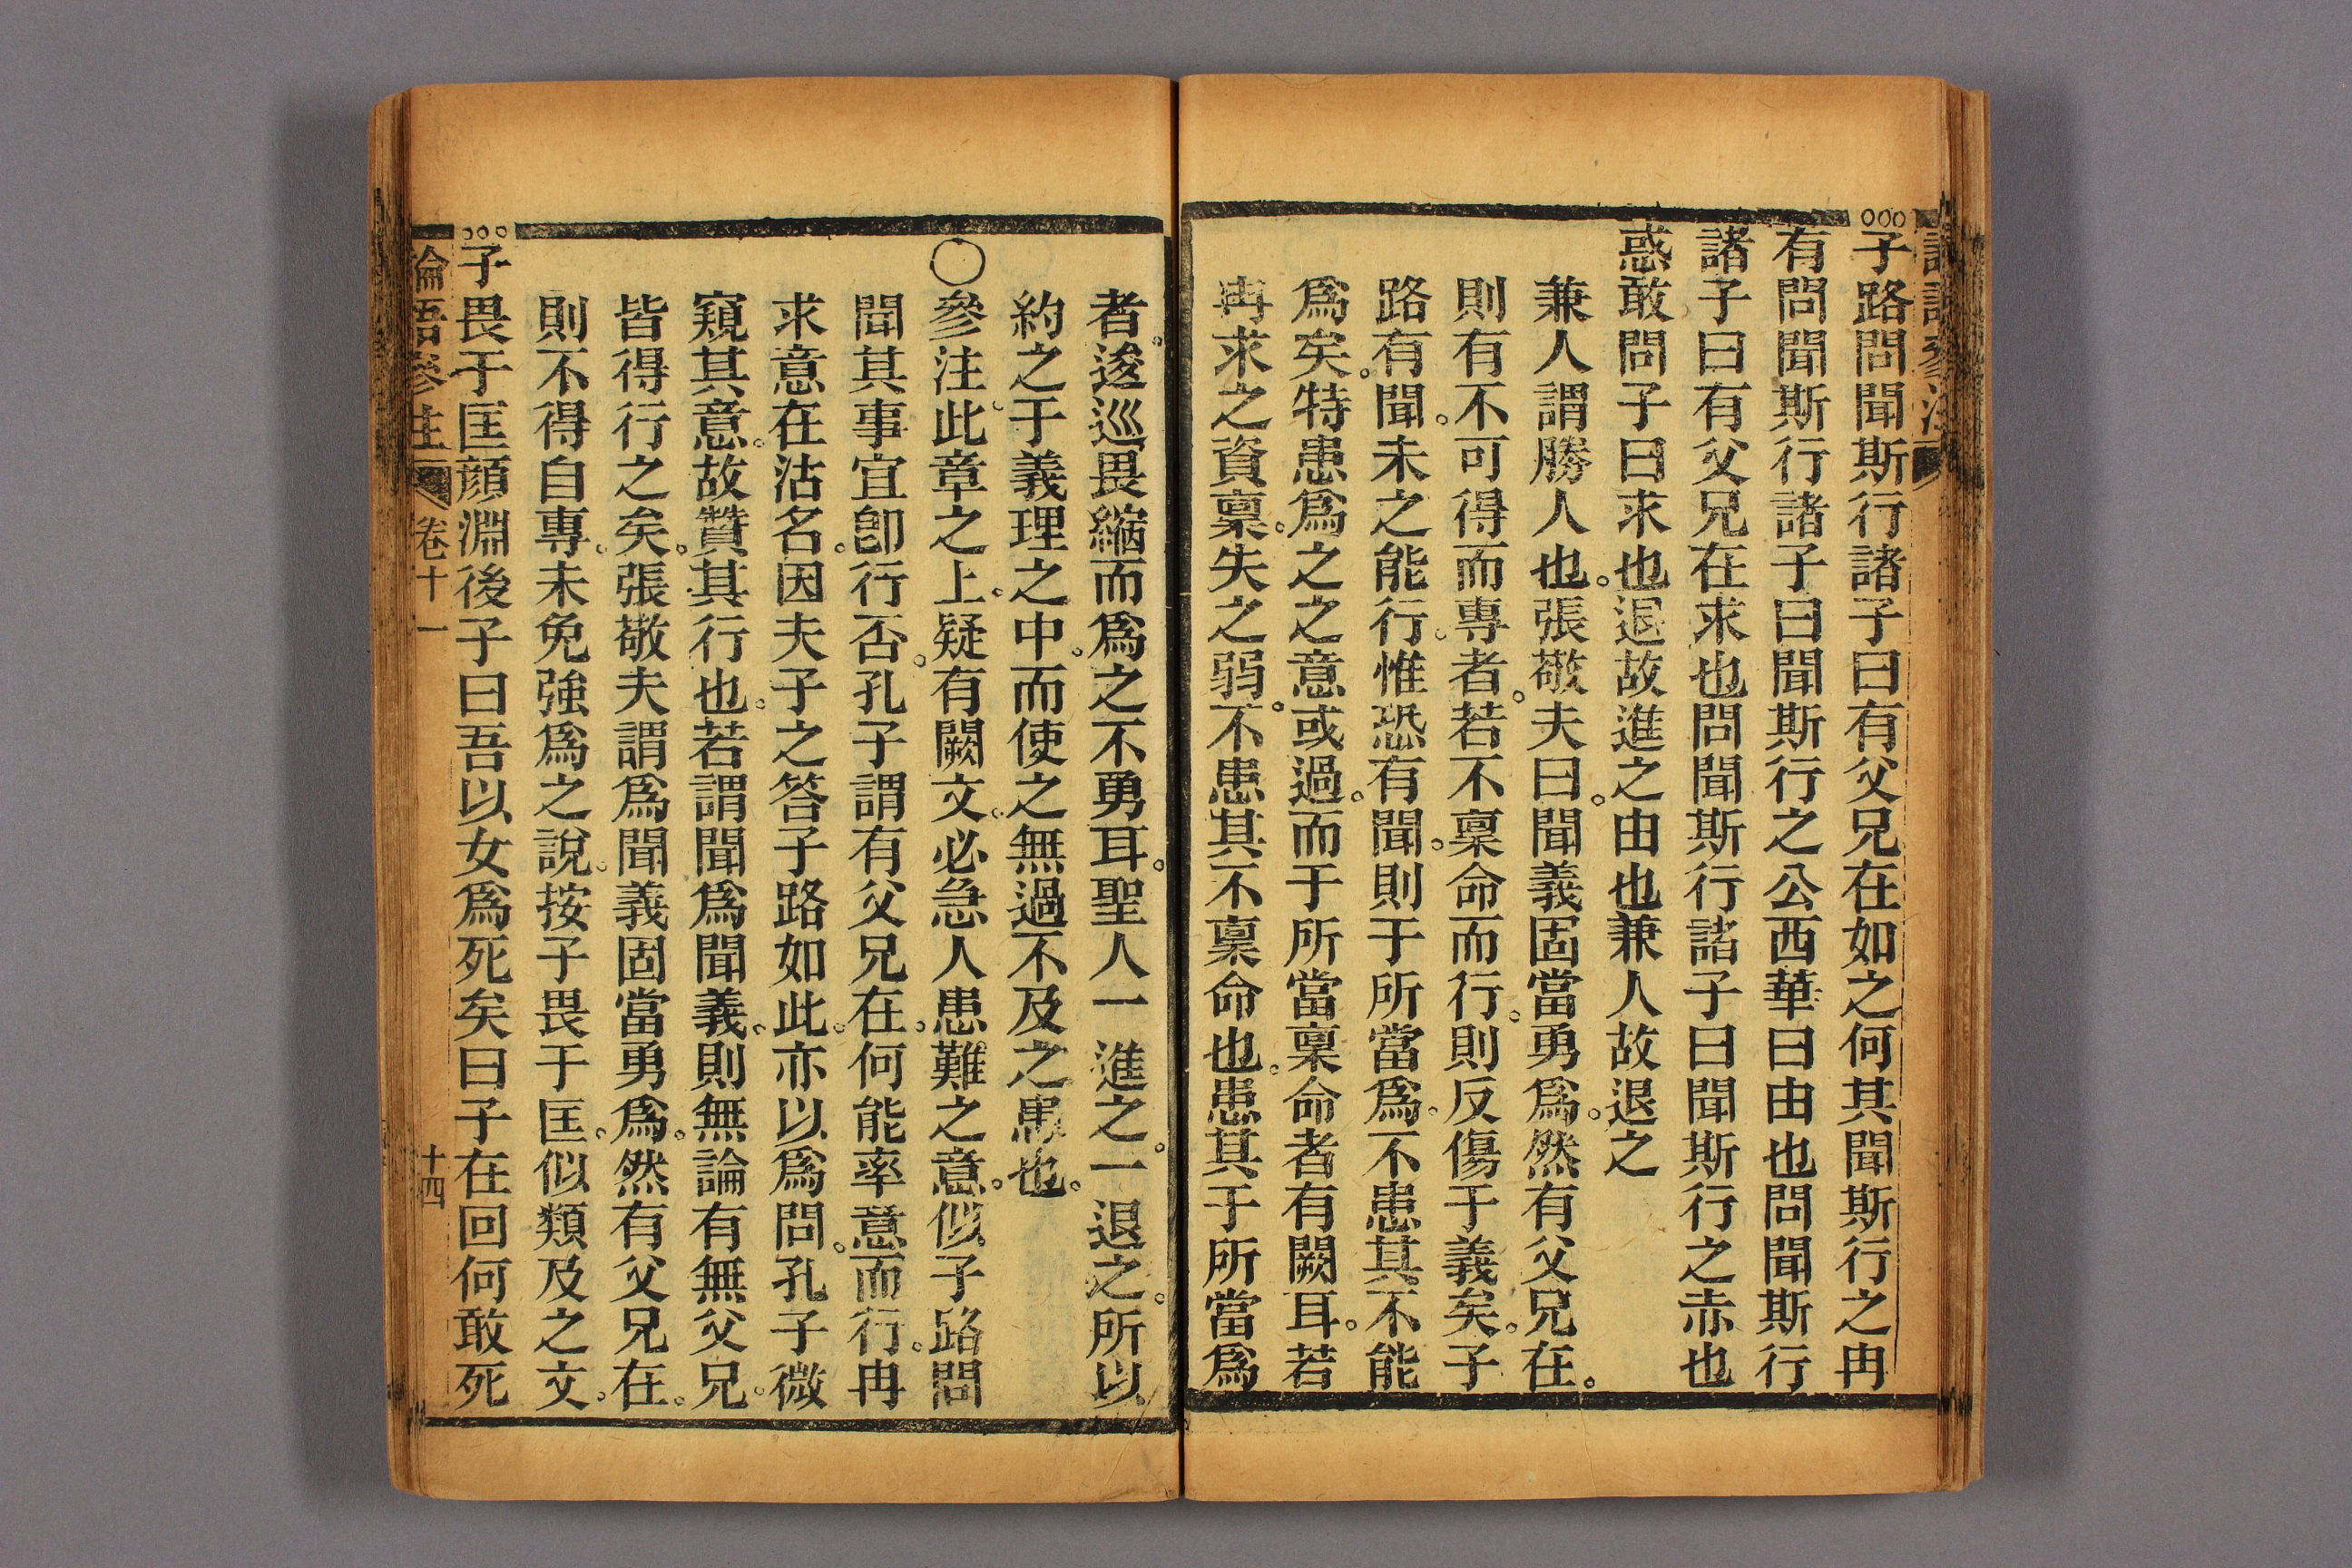 子路問聞斯行諸子曰有父兄在如之何其聞斯行之冉
有問聞斯行諸子曰聞斯行之公西華曰由也問聞斯行
諸子曰有父兄在求也問聞斯行諸子曰聞斯行之赤也
惑敢問子曰求也退故進之由也兼人故退之
兼人謂勝人也。張敬夫曰。聞義固當勇爲。然有父兄在。
則有不可得而專者。若不稟命而行。則反傷于義矣。子
路有聞。未之能行。惟恐有聞。則于所當爲。不患其不能
爲矣。特患爲之之意或過。而于所當稟命者有闕耳。若
冉求之資稟。失之弱。不患其不稟命也。患其于所當爲
者。逡巡畏縮而爲之不勇耳。聖人一進之。一退之。所以
約之于義理之中。而使之無過不及之患也。
〇參注。此章之上。疑有闕文。必急人患難之意。似子路問
聞其事宜卽行否。孔子謂有父兄在。何能率意而行。冉
求意在沽名。因夫子之答子路如此。亦以爲問。孔子微
窺其意。故贊其行也。若謂聞爲聞義。則無論有無父兄。
皆得行之矣。張敬夫謂爲聞義固當勇爲。然有父兄在。
則不得自專。未免強爲之說。按子畏于匡。似類及之文。
子畏于匡顏淵後子曰吾以女爲死矣曰子在回何敢死
論語參注 卷十一 十四